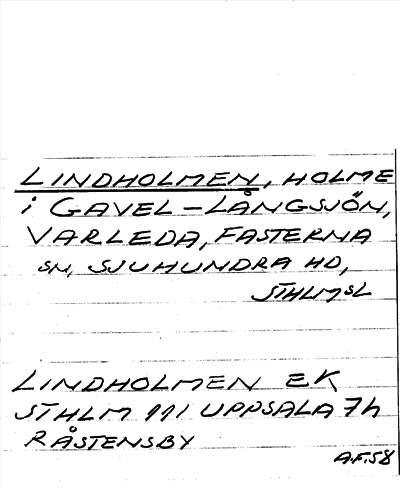 LINDHOLMEN, HOLME
i GAVEL-LÅNGSJÖN,
VARLEDA, FASTERNA
SN, SJUHUNDRA HD,
STHLMSL
LINDHOLMEN EK
STHLM 111 UPPSALA 7h
RÅSTENSBY
A.F.58